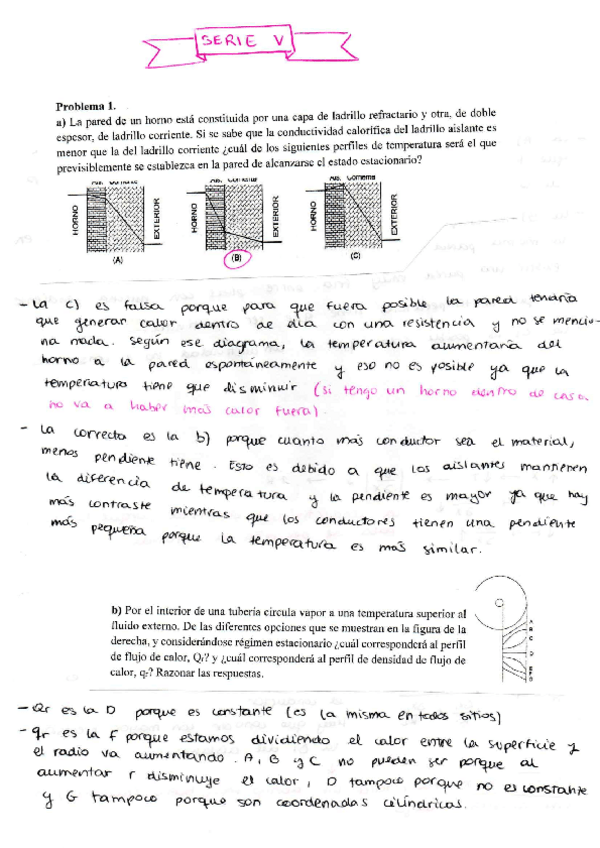 SERIE V
Problema 1.
a) La pared de un horno está constituida por una capa de ladrillo refractario y otra, de doble
espesor, de ladrillo corriente. Si se sabe que la conductividad calorífica del ladrillo aislante es
menor que la del ladrillo corriente ¿cuál de los siguientes perfiles de temperatura será el que
previsiblemente se establezca en la pared de alcanzarse el estado estacionario?
HORNO
EXTERIOR
(A)
HORNO
EXTERIOR
(B)
Ais. Corriente
HORNO
EXTERIOR
(C)
- La c) es falsa porque para que fuera posible la pared tendría
que generar calor dentro de ella con una resistencia y no se mencio-
na nada. Según ese diagrama, la temperatura aumentaría del
horno a la pared espontáneamente y eso no es posible ya que la
temperatura tiene que disminuir (si tengo un horno dentro de casa
no va a haber más calor fuera).
- La correcta es la b) porque cuanto más conductor sea el material,
menos pendiente tiene. Esto es debido a que los aislantes mantienen
la diferencia de temperatura y la pendiente es mayor ya que hay
más contraste mientras que los conductores tienen una pendiente
más pequeña porque la temperatura es más similar.
b) Por el interior de una tubería circula vapor a una temperatura superior al
fluido externo. De las diferentes opciones que se muestran en la figura de la
derecha, y considerándose régimen estacionario ¿cuál corresponderá al perfil
de flujo de calor, Qr? y ¿cuál corresponderá al perfil de densidad de flujo de
calor, qr? Razonar las respuestas.
- Qr es la D porque es constante (es la misma en todos sitios)
- qr es la F porque estamos dividiendo el calor entre la superficie y
el radio va aumentando. A, B y C no pueden ser porque al
aumentar r disminuye el calor, D tampoco porque no es constante
y G tampoco porque son coordenadas cilíndricas.